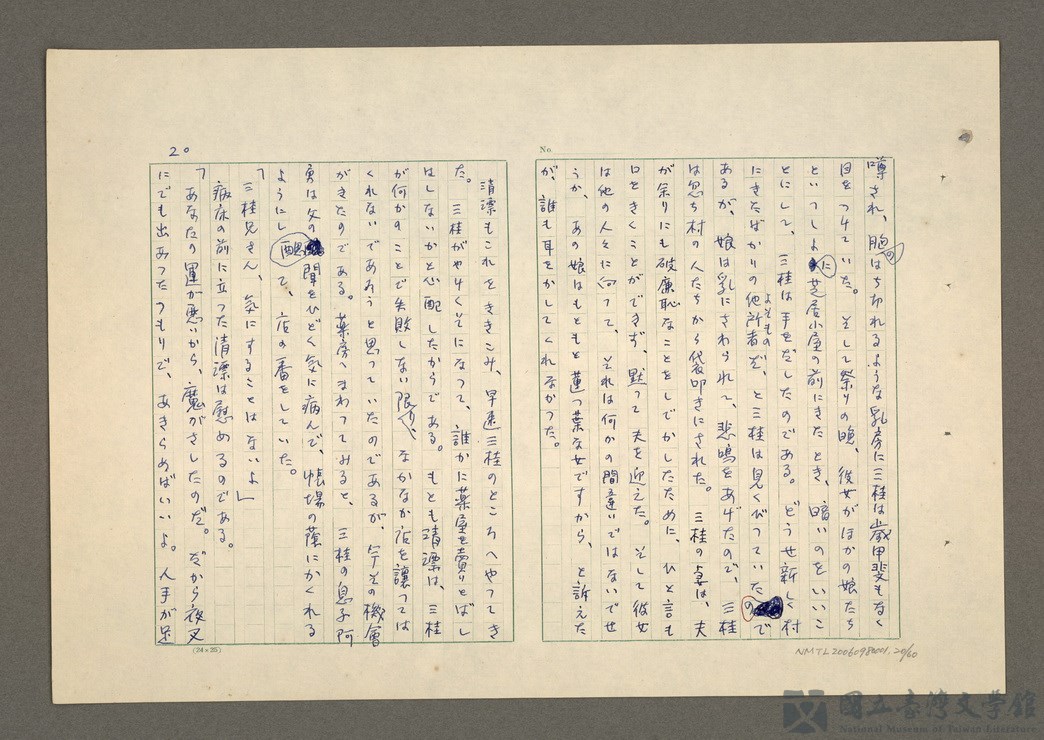 No
噂され、胸のはち切れるような乳房に三桂は歳甲斐もなく
目をつけていた。そして祭りの晩、彼女がほかの娘たち
といつしょに芝居小屋の前にきたとき、暗いのをいいこ
とにして、三桂は手をだしたのである。どうせ新しく村
にきたばかりの他所者だ、と三桂は見くびつていたので
よそもの
あるが、娘は乳にさわられて、悲鳴をあげたので、三桂
は忽ち村の人たちから袋叩きにされた。三桂の妻は、夫
が余りにも破廉恥なことをしでかしたために、ひと言も
口をきくことができず、黙って夫を迎えた。そして彼女
は他の人々に向って、それは何かの間違いではないでせ
うか、あの娘はもともと蓮つ葉な女ですから、と訴えた
が、誰も耳をかしてくれなかつた。
清漂もこれをききこみ、早速三桂のところへやつてき
た。三桂がやけくそになつて、誰かに薬屋を賣りとばし
はしないかと心配したからである。もとも清漂は、三桂
が何かのことで失敗しない限り、なかなか店を譲つては
くれないであろうと思っていたのであるが、今その機會
がきたのである。薬房へまわつてみると、三桂の息子阿
勇は父の醜聞をひどく気に病んで、帳場の蔭にかくれる
ようにして、店の番をしていた。
「三桂兄さん、気にすることはないよ」
病床の前に立つた清漂は慰めるのである。
「あなたの運が悪いから、魔がさしたのだ。だから夜叉
にでも出あつたつもりで、あきらめばいいよ。人手が足
20
(24×25)
NMTL20060980001,20/60
國立臺灣文學館
National Museum of Taiwan Literature